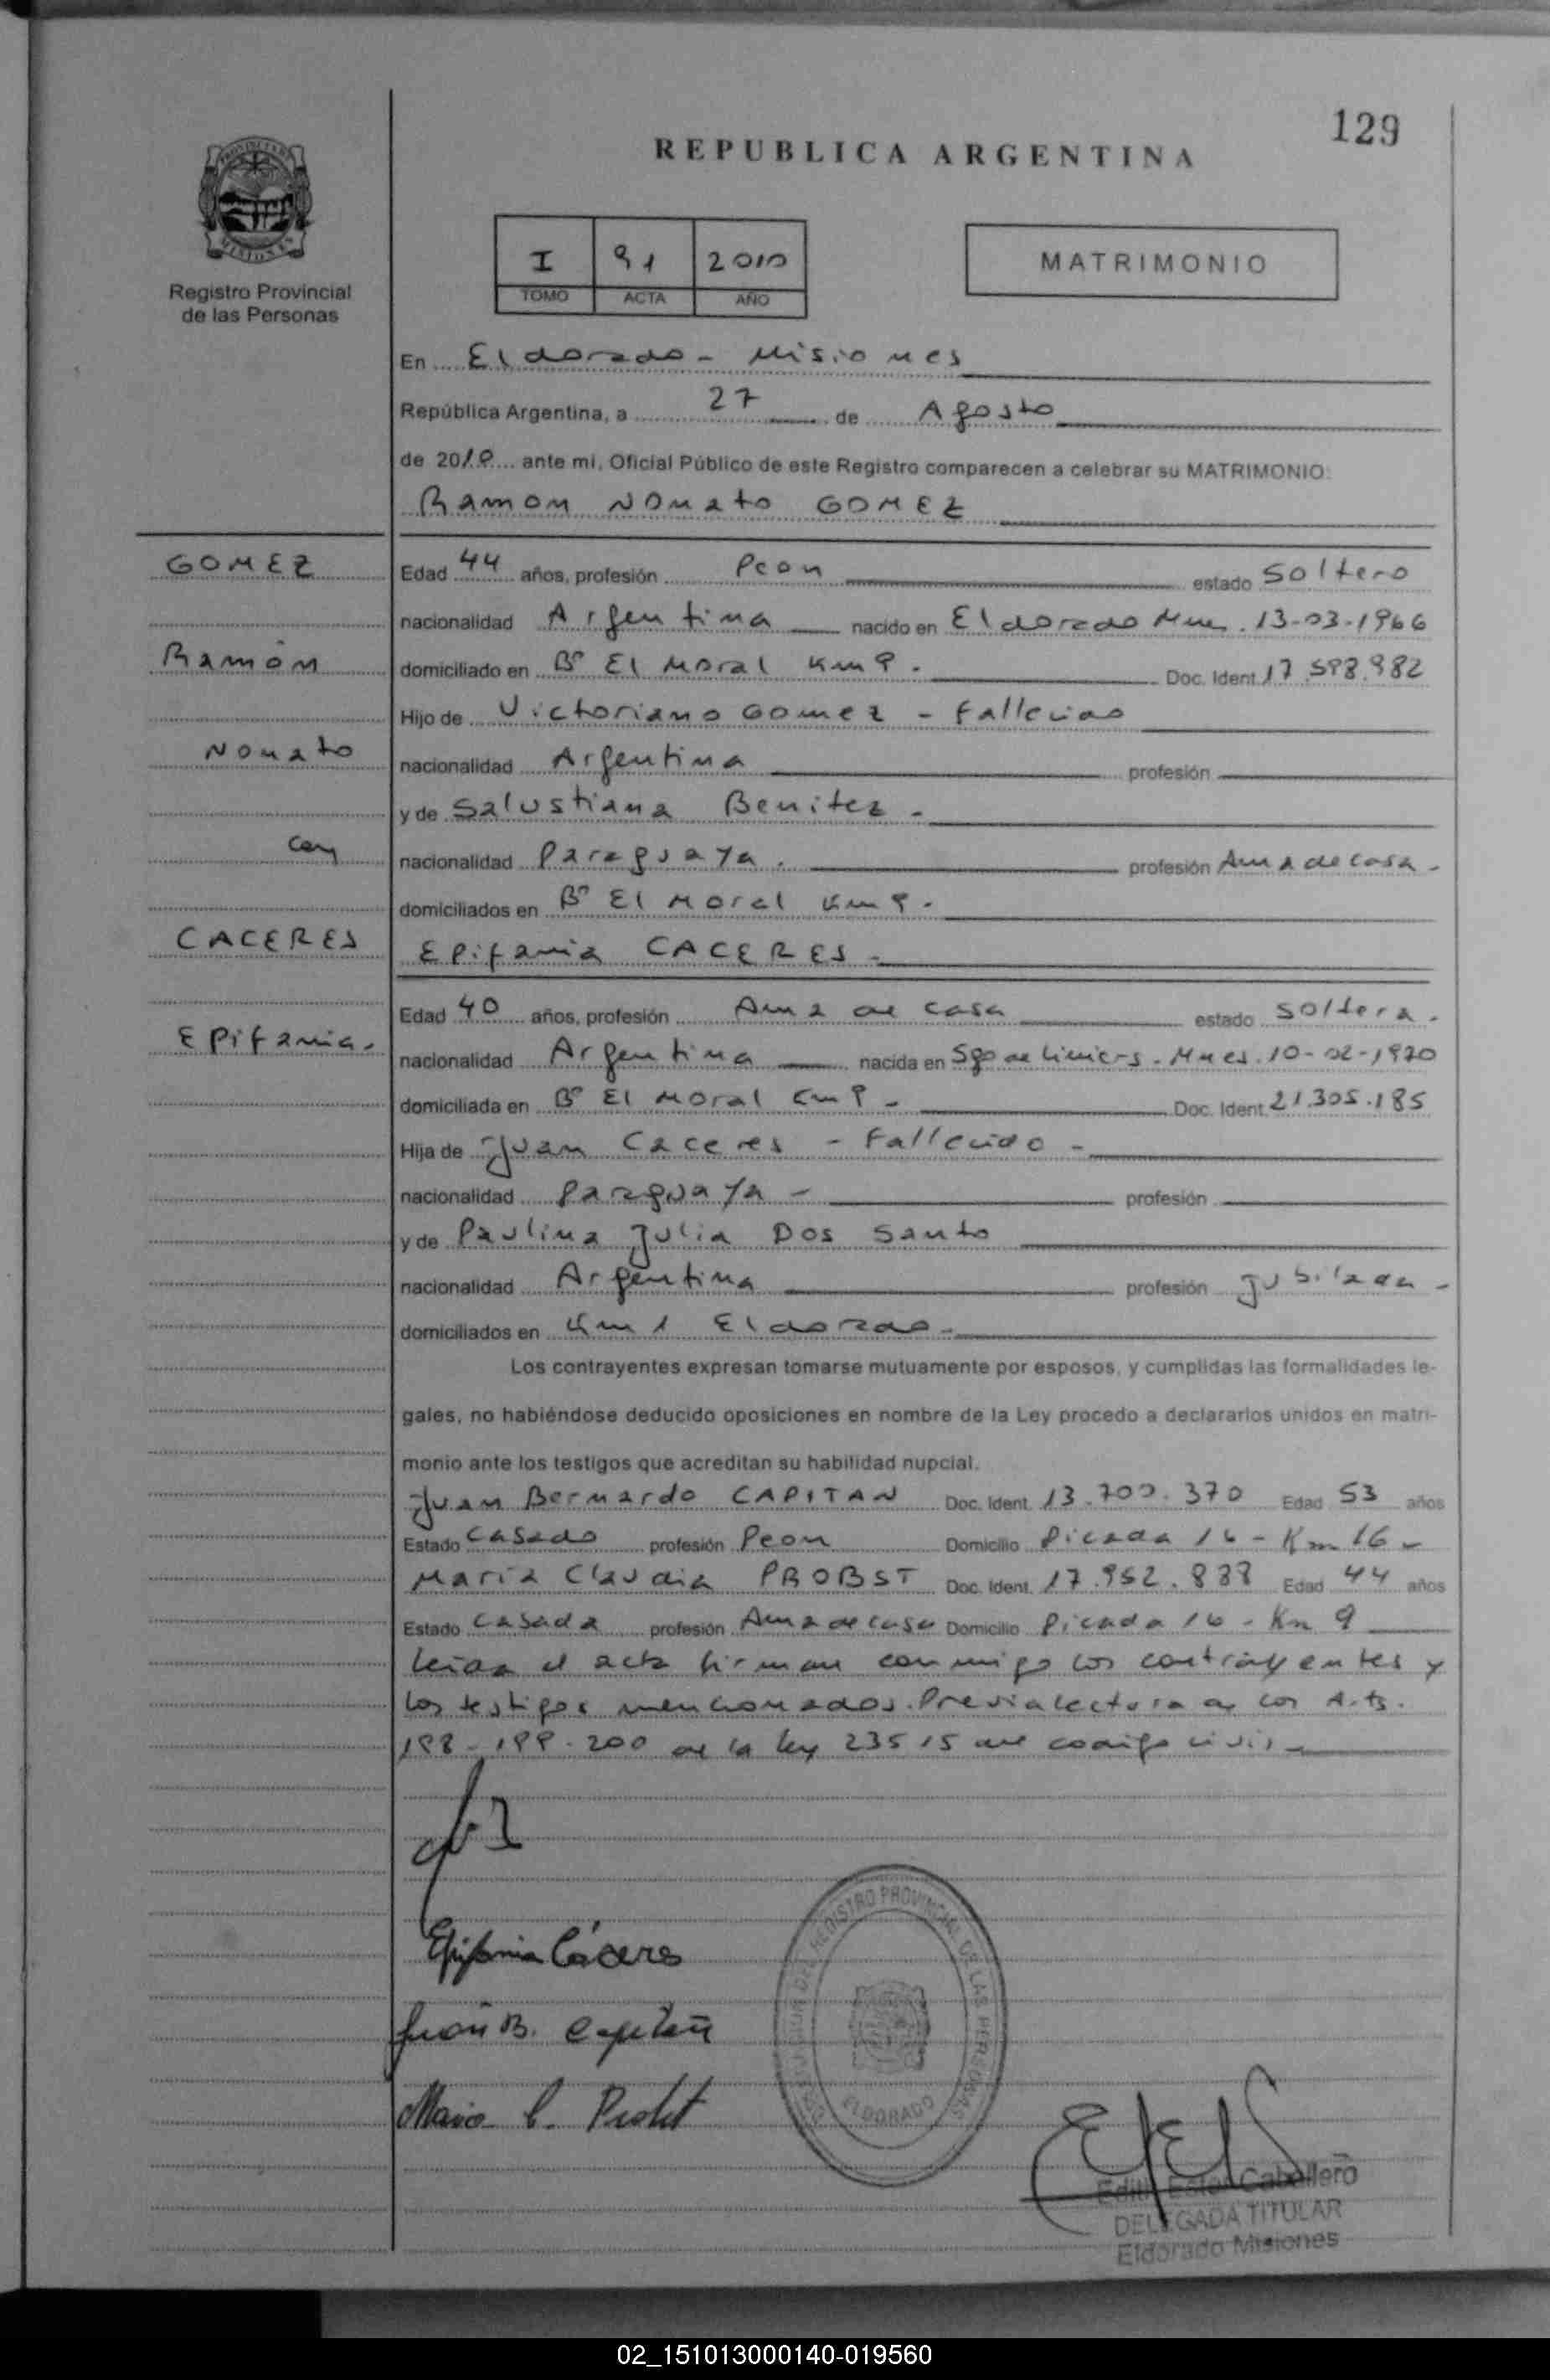 129
REPUBLICA ARGENTINA
PROVINCIA DE
MISIONES
Registro Provincial
de las Personas
I 91 2010
TOMO ACTA AÑO
MATRIMONIO
En Eldorado - Misiones
República Argentina, a 27 de Agosto
de 2010 ante mi, Oficial Público de este Registro comparecen a celebrar su MATRIMONIO:
Ramon Nonato GOMEZ
GOMEZ
Ramón
Nonato
con
CACERES
Epifania.
Edad 44 años, profesión Peon estado Soltero
nacionalidad Argentina nacido en Eldorado Mnes. 13-03-1966
domiciliado en Bº El Moral Km 9. Doc. Ident. 17.598.982
Hijo de Victoriano Gomez - Fallecido
nacionalidad Argentina profesión
y de Salustiana Benitez -
nacionalidad Paraguaya. profesión Ama de casa -
domiciliados en Bº El Moral Km 9.
Epifania CACERES -
Edad 40 años, profesión Ama de casa estado Soltera.
nacionalidad Argentina nacida en Sgo de Liniers. Mnes. 10-02-1970
domiciliada en Bº El Moral Km 9 - Doc. Ident. 21.305.185
Hija de Juan Caceres - Fallecido -
nacionalidad Paraguaya - profesión
y de Paulina Julia Dos Santo
nacionalidad Argentina profesión Jubilada -
domiciliados en Km 1 Eldorado -
Los contrayentes expresan tomarse mutuamente por esposos, y cumplidas las formalidades le-
gales, no habiéndose deducido oposiciones en nombre de la Ley procedo a declararlos unidos en matri-
monio ante los testigos que acreditan su habilidad nupcial.
Juan Bernardo CAPITAN Doc. Ident. 13.700.370 Edad 53 años
Estado Casado profesión Peon Domicilio Picada 16 - Km 16 -
Maria Claudia PROBST Doc. Ident. 17.952.888 Edad 44 años
Estado Casada profesión Ama de casa Domicilio Picada 16 - Km 9
leida el acta firman conmigo los contrayentes y
los testigos mencionados. Previa lectura de los Arts.
198 - 199 - 200 de la ley 23515 del codigo civil -
Epifania Cáceres
Juan B. Capitan
Maria C. Probst
DEL REGISTRO PROVINCIAL DE LAS PERSONAS
ELDORADO
Edith Ester Caballero
DELEGADA TITULAR
Eldorado Misiones
02_151013000140-019560